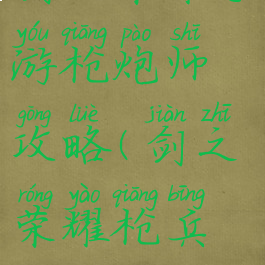 yóu qiāng pào shī
游枪炮师
gōng lüè jiàn zhī
攻略(剑之
róng yào qiāng bīng
荣耀枪兵